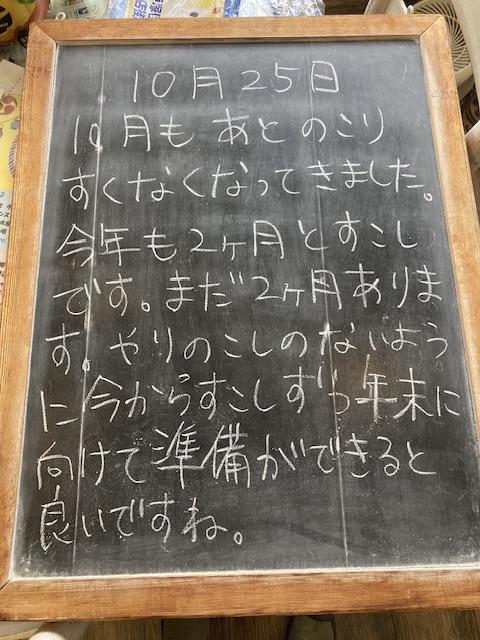 10月25日
10月も あと のこり
すくなくなってきました。
今年も2ヶ月とすこし
です。まだ2ヶ月ありま
す。やりのこしのないよう
に今からすこしずつ年末に
向けて準備ができると
良いですね。